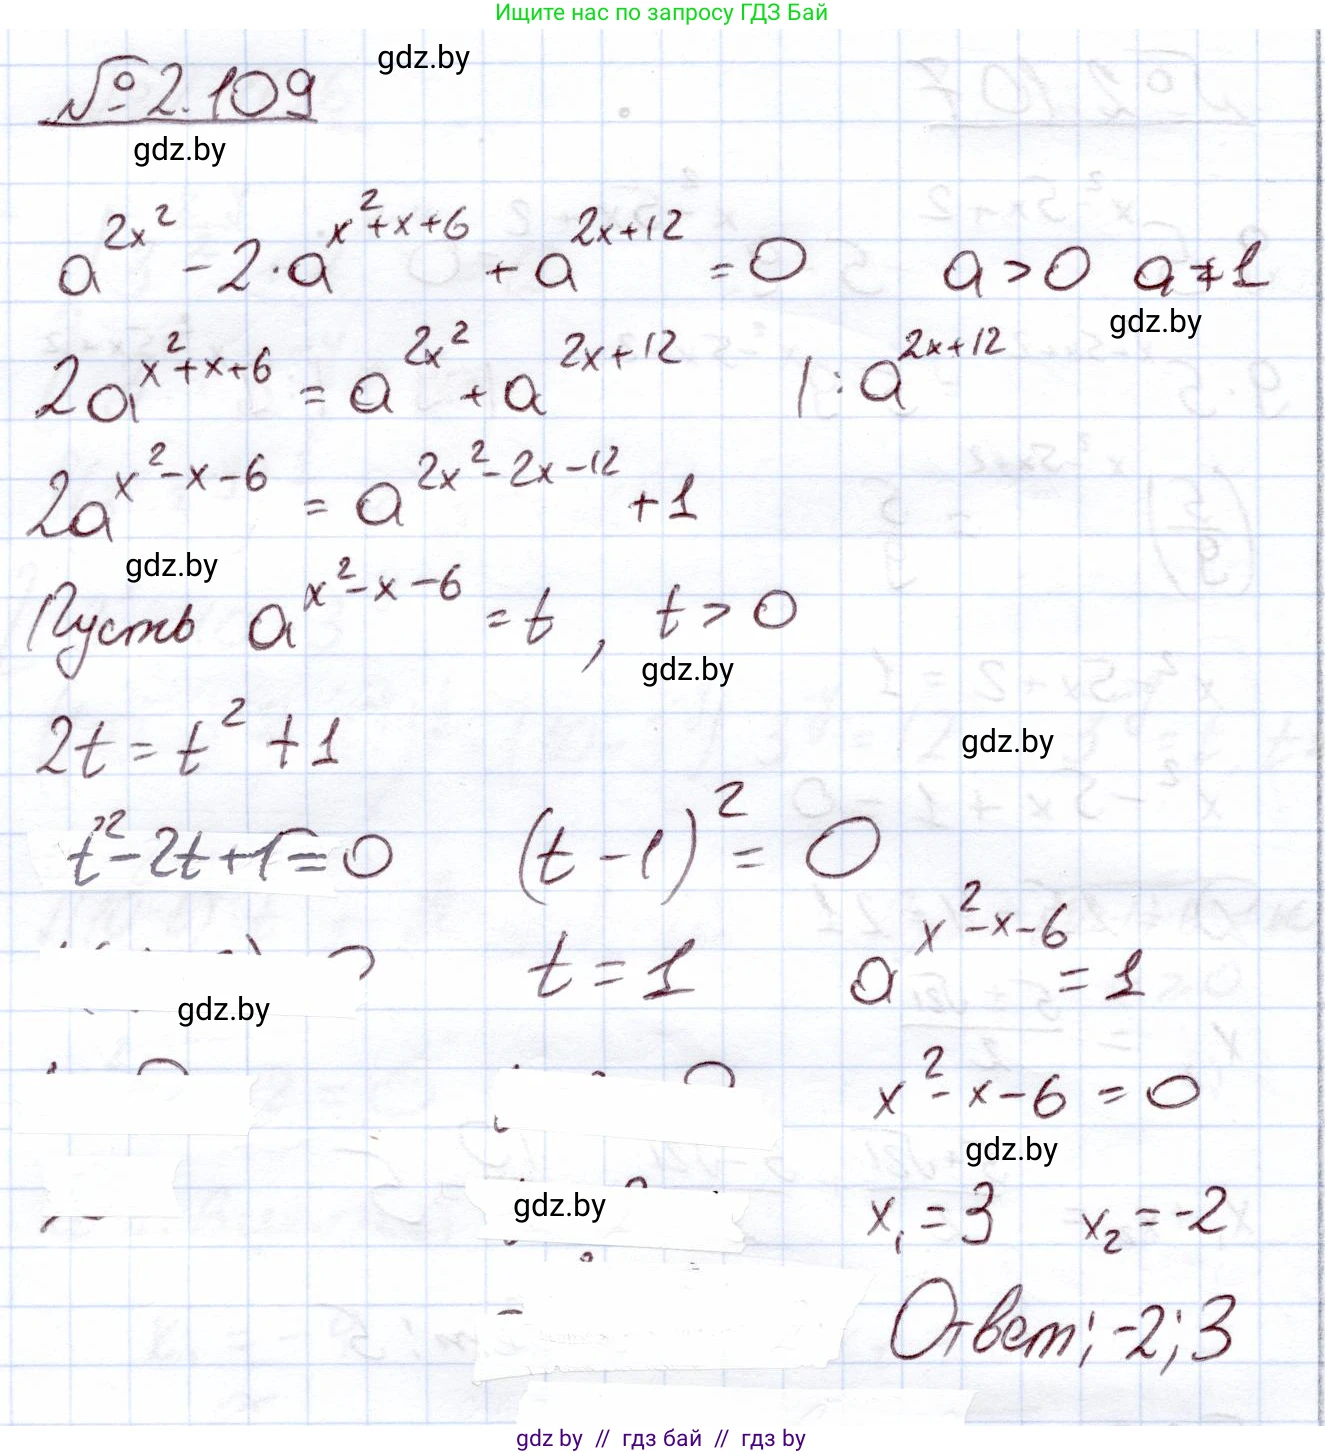 Ищите нас по запросу ГДЗ Бай
gdz.by
№2.109
gdz.by
a^{2x^2} - 2·a^{x^2+x+6} + a^{2x+12} = 0   a > 0   a ≠ 1
gdz.by
2a^{x^2+x+6} = a^{2x^2} + a^{2x+12}   | : a^{2x+12}
2a^{x^2-x-6} = a^{2x^2-2x-12} + 1
gdz.by
Пусть a^{x^2-x-6} = t, t > 0
gdz.by
2t = t^2 + 1
gdz.by
t^2 - 2t + 1 = 0   (t - 1)^2 = 0
t = 1   a^{x^2-x-6} = 1
gdz.by
x^2 - x - 6 = 0
gdz.by
gdz.by
x_1 = 3   x_2 = -2
Ответ: -2; 3
gdz by // гдз бай // гдз by